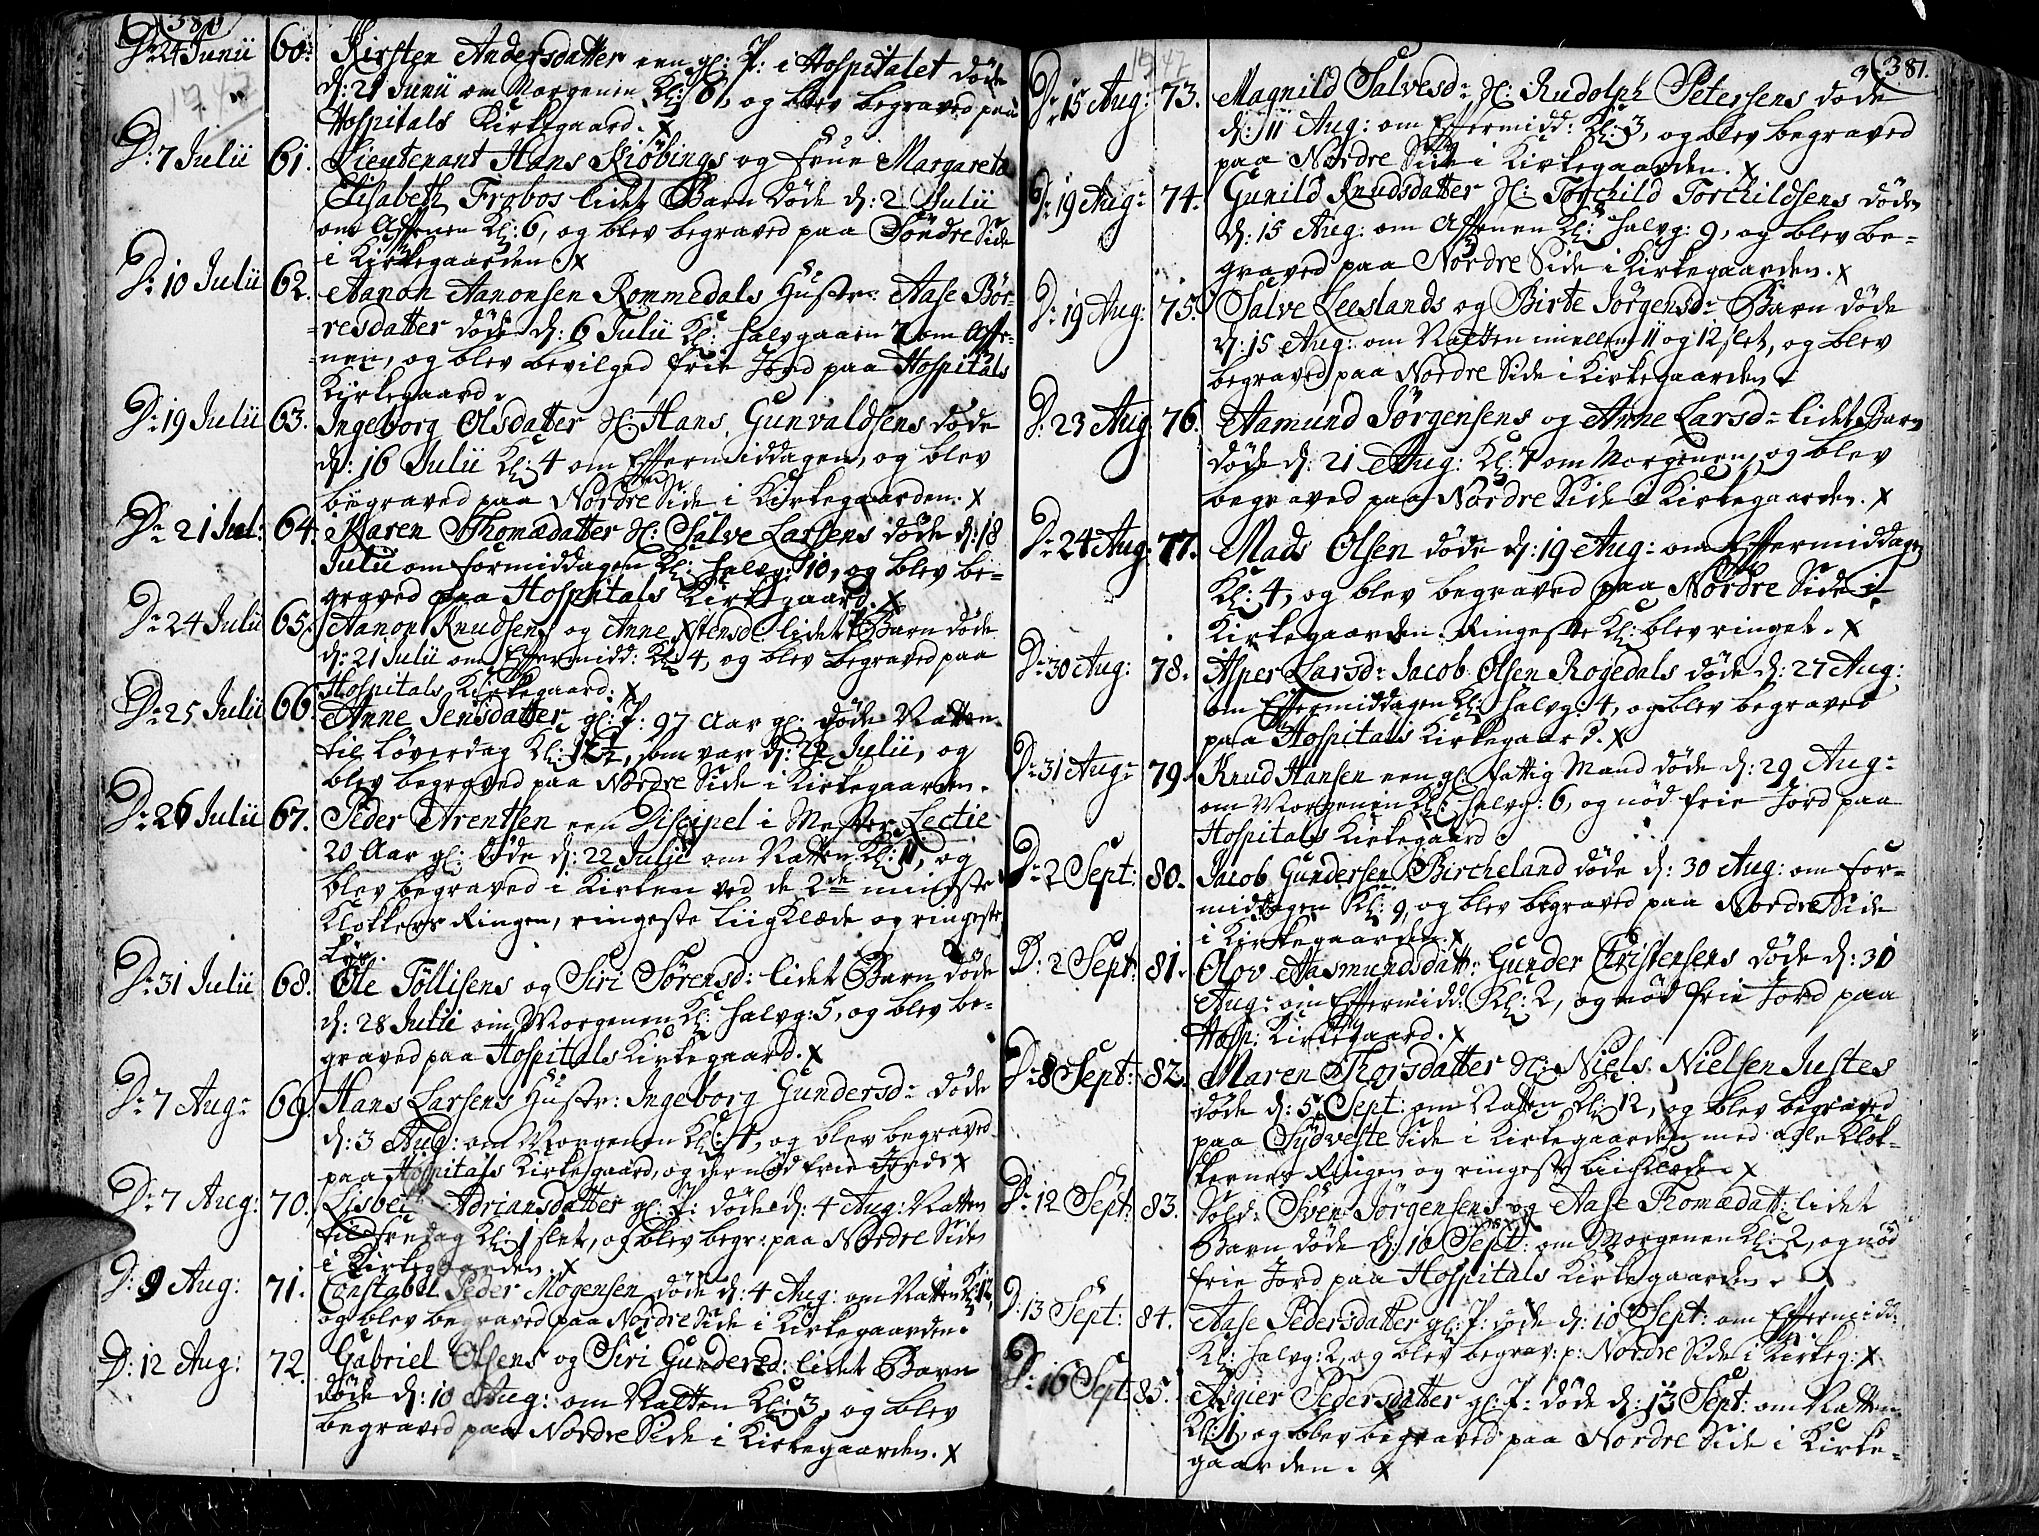 380
1747
D: 24 Junii 60. Kirsten Andersdatter een gl: P: i Hospitalet døde
d: 21 Junii om Morgenen Kl: 6, og blev begraved paa
Hospitals Kirkegaard. X
D: 7 Julii 61. Lieutenant Hans Kiöbings og Frue Margareta
Elisabeth Frobos lidet Barn døde d: 2 Julii
om Afftenen Kl: 6, og blev begraved paa Söndre Side
i Kirkegaarden. X
D: 10 Julii 62. Aanon Aanonsen Rommedals Hustr: Aase Bör-
-resdatter døde d: 6 Julii Kl: halvgaaen 7 om Affte-
-nen, og blev bevilged frie Jord paa Hospitals
Kirkegaard.
D: 19 Julii 63. Ingeborg Olsdatter H: Hans Gunvaldsens døde
d: 16 Julii Kl: 4 om Efftermiddagen, og blev
begraved paa Nordre Side i Kirkegaarden. X
D: 21 Jul: 64. Karen Thomædatter H: Salve Larsens døde d: 18
Julii om formiddagen Kl: halvg: 10, og blev be-
graved paa Hospitals Kirkegaard. X
D: 24 Julii 65. Aanon Knudsens og Anne Xstensd: lidet Barn døde
d: 21 Julii om Efftermidd: Kl: 4, og blev begraved paa
Hospitals Kirkegaard. X
D: 25 Julii 66. Anne Jensdatter gl: P: 97 Aar gl: døde Natten
til Løverdag Kl: som var d: 22 Julii, og
blev begraved paa Nordre Side i Kirkegaarden.
D: 26 Julii 67. Peder Arentsen een Discipel i Mester Lectie
20 Aar gl: døde d: 22 Julii om Natten Kl: 11, og
blev begraved i Kirken ved de 2de mindste
Klokkers Ringen, ringeste Liigklæde og ringeste

D: 31 Julii 68. Ole Töllisens og Siri Sörensd: lidet Barn døde
d: 28 Julii om Morgenen Kl: halvg: 5, og blev be-
graved paa Hospitals Kirkegaard. X
D: 7 Aug: 69. Hans Larsens Hustr: Ingeborg Gundersd: døde
d: 3 Aug: om Morgenen Kl: 4, og blev begraved
paa Hospitals Kirkegaard, og der nød frie Jord. X
D: 7 Aug: 70. Lisbet Adriansdatter gl: P: døde d: 4 Aug: Natten
til Fredag Kl: 1 slet, og blev begr: paa Nordre Side
i Kirkegaarden. X
D: 9 Aug: 71. Constabel Peder Mogensen døde d: 4 Aug: om Natten Kl: 12,
og blev begraved paa Nordre Side i Kirkegaarden.
D: 12 Aug: 72. Gabriel Olsens og Siri Gundersd: lidet Barn
døde d: 10 Aug: om Natten Kl: 3, og blev
begraved paa Nordre Side i Kirkegaarden. X
1747
381.
D: 15 Aug: 73. Magnild Salvesd: H: Rudolph Petersens døde
d: 11 Aug: om Efftermidd: Kl: 3, og blev begraved
paa Nordre Side i Kirkegaarden. X
D: 19 Aug: 74. Gunild Knudsdatter H: Torchild Torchildsens døde
d: 15 Aug: om Afftenen Kl: halvg: 9, og blev be-
graved paa Nordre Side i Kirkegaarden. X
D: 19 Aug: 75. Salve Leeslands og Birte Jörgensd: Barn døde
d: 15 Aug: om Natten imellem 11 og 12 slet, og blev
begraved paa Nordre Side i Kirkegaarden
D: 23 Aug 76. Aamund Jörgensens og Anne Larsd: lidet Barn
døde d: 21 Aug: Kl: 7 om Morgenen, og blev
begraved paa Nordre Side i Kirkegaarden. X
D: 24 Aug: 77. Mads Olsen døde d: 19 Aug: om Efftermiddagen
Kl: 4, og blev begraved paa Nordre Side i
Kirkegaarden. Ringeste Kl: blev ringet. X
D: 30 Aug: 78. Asper Larsd: Jacob Olsen Rogedals døde d: 27 Aug:
om Efftermiddagen Kl: halvg: 4, og blev begraved
paa Hospitals Kirkegaard. X
D: 31 Aug: 79. Knud Hansen een gl: fattig Mand døde d: 29 Aug:
om Morgenen Kl: halvg: 6, og nød frie Jord paa
Hospitals Kirkegaard.
D: 2 Sept: 80. Jacob Gundersen Bircheland døde d: 30 Aug: om for-
middagen Kl: 9, og blev begraved paa Nordre Side
i Kirkegaarden. X
D: 2 Sept: 81. Olov Aasmundsdatt: Gunder Christensens døde d: 30
Aug: om Efftermidd: Kl: 2, og nød frie Jord paa
Hosp: Kirkegaard. X
D: 8 Sept: 82. Maren Thorsdatter H: Niels Nielsen Justes
døde d: 5 Sept: om Natten Kl: 12, og blev begraved
paa Sydveste Side i Kirkegaarden med alle Klok-
kernes Ringen og ringeste Liigklæde. X
D: 12 Sept: 83. Sold: Sven Jörgensens og Aase Thomædatt: lidet
Barn døde d: 10 Sept: om Morgenen Kl: 2, og nød
frie Jord paa Hospitals Kirkegaarden. X
D: 13 Sept: 84. Aase Pedersdatter gl: P: døde d: 10 Sept: om Efftermidd:
Kl: halvg: 2, og blev begrav: p: Nordre Side i Kirkeg: X
D: 16 Sept 85. Asgier Pedersdatter gl: P: døde d: 13 Sept: om Natten
Kl: 1, og blev begraved paa Nordre Side i Kirke-
gaarden. X